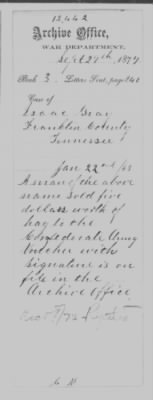 12442
Archive Office,
WAR DEPARTMENT,
Sept 27th, 1874
Book 3. Letters Sent, page 140
Case of
Isaac Gray
Franklin County
Tennessee
Jan 22nd /63
A man of the above
name sold five
dollars worth of
hay to the
Confederate Army
Voucher with
signature is on
file in the
Archive Office